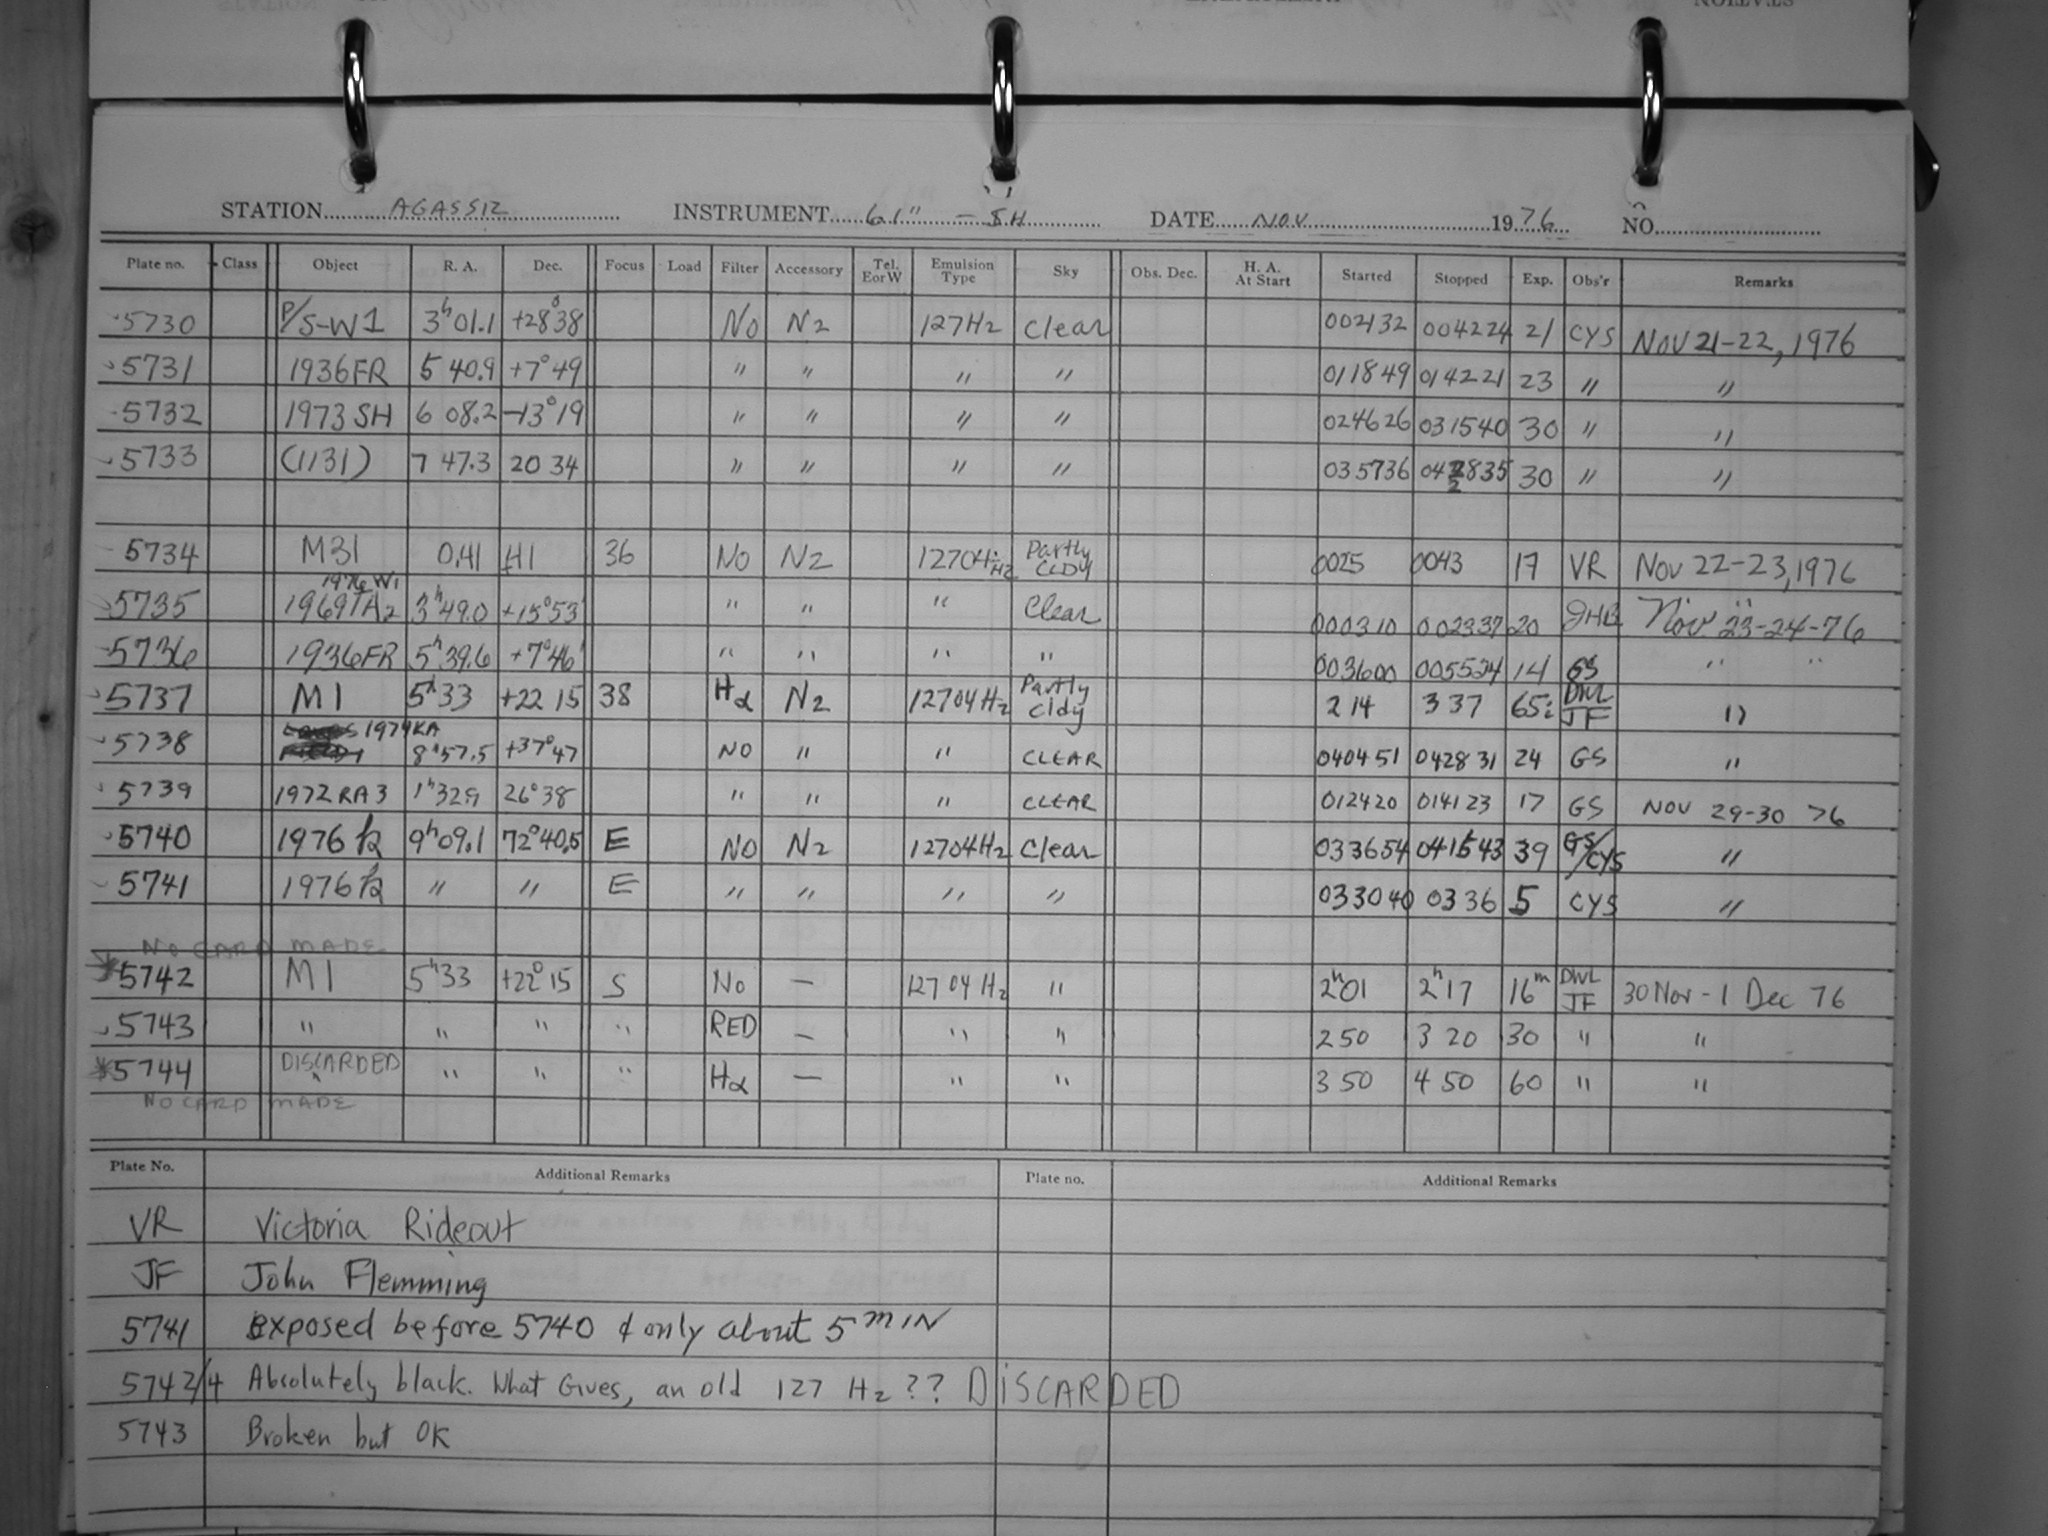 STATION AGASSIZ INSTRUMENT 61" - SH DATE NOV 1976 NO.
Plate no. Class Object R. A. Dec. Focus Load Filter Accessory Tel. E or W Emulsion Type Sky Obs. Dec. H. A. At Start Started Stopped Exp. Obs'r Remarks
5730 P/S-W1 3h 01.1 +28° 38 No N2 127Hz Clear 002132 004224 21 CYS Nov 21-22, 1976
5731 1936FR 5 40.9 +7° 49 " " " " 011849 014221 23 " "
5732 1973 SH 6 08.2 -13° 19 " " " " 024626 031540 30 " "
5733 (1131) 7 47.3 20 34 " " " " 035736 042835 30 " "
5734 M31 0.41 41 36 No N2 12704Hz Partly CLDY 0025 0043 17 VR Nov 22-23, 1976
1976 W1
5735 1969TA2 3h 49.0 +15° 53' " " " Clear 000310 002337 20 JHB Nov 23-24-76
5736 1936FR 5h 39.6 +7° 46' " " " " 003600 005524 14 GS " "
5737 M1 5h 33 +22 15 38 Hα N2 12704Hz Partly cldy 2 14 3 37 65: DWL JF "
5738 1974KA 8h 57.5 +37° 47 NO " " CLEAR 040451 042831 24 GS "
5739 1972 RA3 1h 32.9 26° 38 " " " CLEAR 012420 014123 17 GS NOV 29-30 76
5740 1976 h 9h 09.1 72° 40.5 E NO N2 12704Hz Clear 033654 041543 39 GS/CYS "
5741 1976 h " " E " " " " 033040 0336 5 CYS "
NO CARD MADE
*5742 M1 5h 33 +22° 15 S No — 12704Hz " 2h 01 2h 17 16m DWL JF 30 Nov - 1 Dec 76
5743 " " " " RED — " " 2 50 3 20 30 " "
*5744 DISCARDED " " " Hα — " " 3 50 4 50 60 " "
NO CARD MADE
Plate No. Additional Remarks Plate no. Additional Remarks
VR Victoria Rideout
JF John Flemming
5741 Exposed before 5740 & only about 5 MIN
5742/4 Absolutely black. What Gives, an old 127 Hz?? DISCARDED
5743 Broken but OK